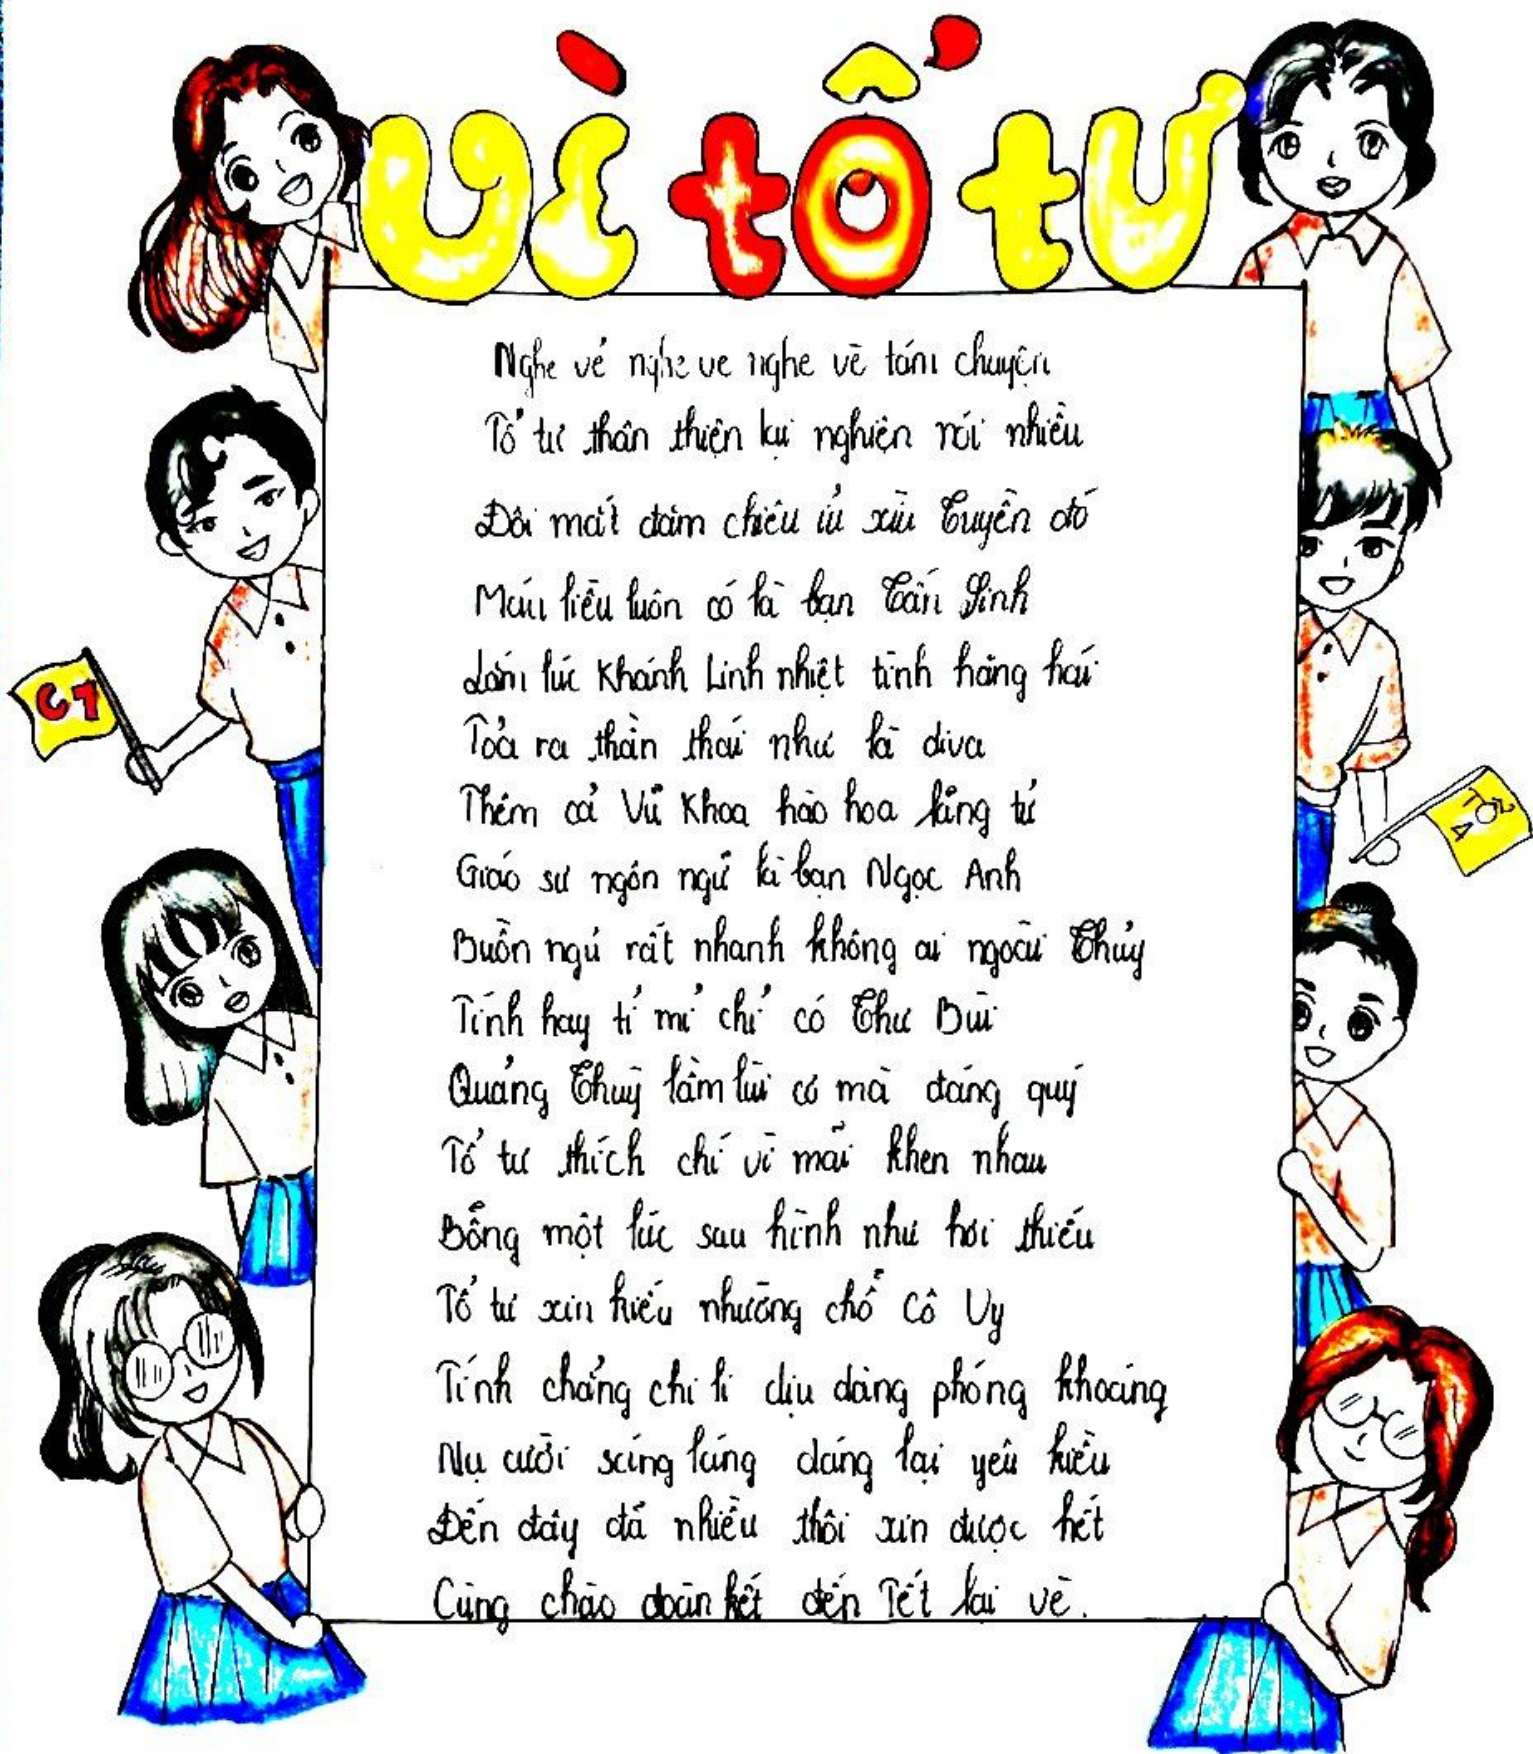 Vì tổ tư
Nghe vẻ nghe ve nghe vè tám chuyện
Tổ tư thân thiện lại nghiện nói nhiều
Đôi mắt đăm chiêu ỉu xìu Tuyền đó
Máu liều luôn có là bạn Tấn Sinh
Lắm lúc Khánh Linh nhiệt tình hăng hái
Toả ra thần thái như là diva
Thêm cả Vũ Khoa hào hoa lãng tử
Giáo sư ngôn ngữ là bạn Ngọc Anh
Buồn ngủ rất nhanh không ai ngoài Thủy
Tính hay tỉ mỉ chỉ có Thư Bùi
Quảng Thuỵ lầm lùi có mà đáng quý
Tổ tư thích chí vì mải khen nhau
Bỗng một lúc sau hình như hơi thiếu
Tổ tư xin hiểu nhường chỗ Cô Vy
Tính chẳng chi li dịu dàng phóng khoáng
Nụ cười sáng láng dáng lại yêu kiều
Đến đây đã nhiều thôi xin được hết
Cùng chào đoàn kết đến Tết lại về.
C7
TỔ 4